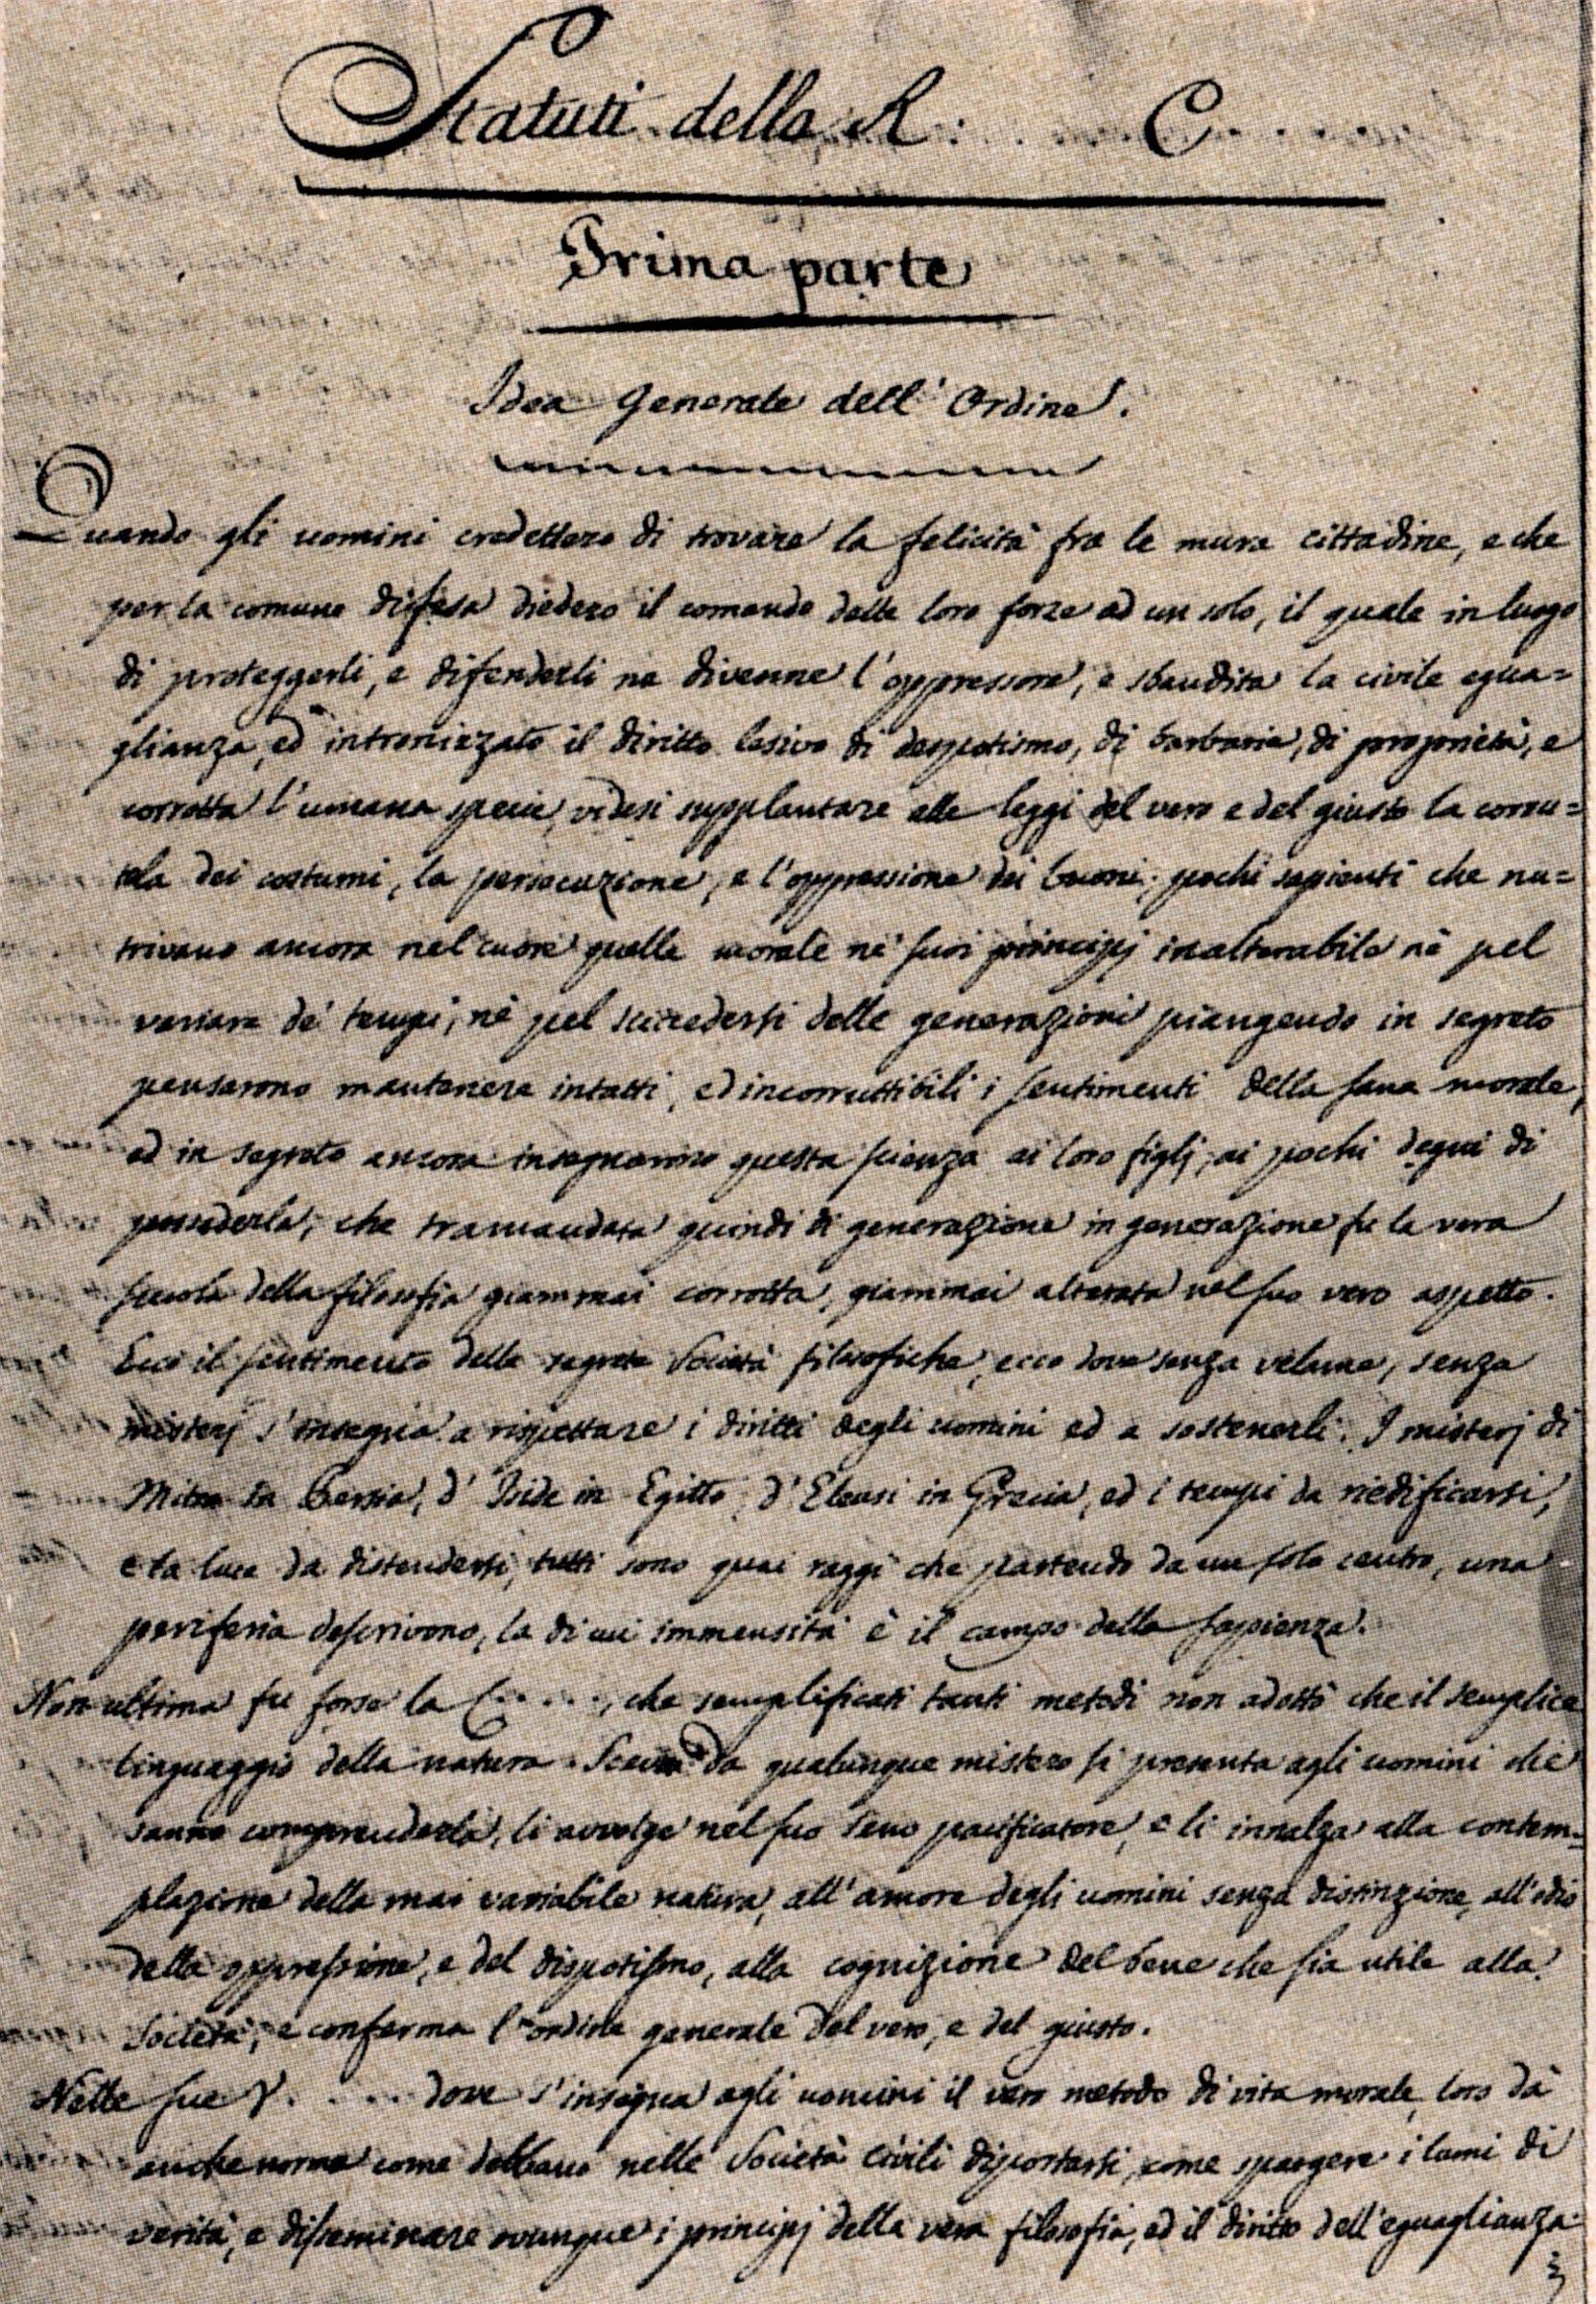 Statuti della R. . . . C. . . . .
Prima parte
Idea Generale dell' Ordine.
Quando gli uomini credettero di trovare la felicità fra le mura cittadine, e che
per la comune difesa diedero il comando delle loro forze ad un solo, il quale in luogo
di proteggerli, e difenderli ne divenne l'oppressore, e sbandita la civile egua=
glianza, ed intronizzato il diritto lesivo di despotismo, di barbaria, di proprietà, e
corrotta l'umana specie, videsi supplantare alle leggi del vero e del giusto la corru=
tela dei costumi, la persecuzione, e l'oppressione dei buoni; pochi sapienti che nu=
trivano ancora nel cuore quella morale ne' suoi principj inalterabile nè pel
variare de' tempi, nè pel succedersi delle generazioni piangendo in segreto
pensarono mantenere intatti, ed incorruttibili i sentimenti della sana morale,
ed in segreto ancora insegnarono questa scienza ai loro figlj, ai pochi degni di
possederla, che tramandata quindi di generazione in generazione fu la vera
scuola della filosofia giammai corrotta, giammai alterata nel suo vero aspetto.
Ecco il sentimento delle segrete Società filosofiche, ecco dove senza velame, senza
misterj s'insegna a rispettare i diritti degli uomini ed a sostenerli. I misterj di
Mitra in Persia, d' Iside in Egitto, d' Eleusi in Grecia, ed i tempi da riedificarsi,
e la luce da distendersi, tutti sono quai raggi che partendo da un solo centro, una
periferia descrivono, la di cui immensità è il campo della sapienza.
Non ultima fu forse la C. . . . . , che semplificati tanti metodi non adottò che il semplice
linguaggio della natura. Scevra da qualunque mistero si presenta agli uomini che
sanno comprenderla, li avvolge nel suo seno pacificatore, e li innalza alla contem=
plazione della mai variabile natura, all'amore degli uomini senza distinzione, all'odio
della oppressione, e del dispotismo, alla cognizione del bene che sia utile alla
Società, e conferma l'ordine generale del vero, e del giusto.
Nelle sue V. . . . . dove s'insegna agli uomini il vero metodo di vita morale, loro dà
anche norma come debbano nelle Società civili diportarsi, come spargere i lumi di
verità, e disseminare ovunque i principj della vera filosofia, ed il diritto dell'eguaglianza